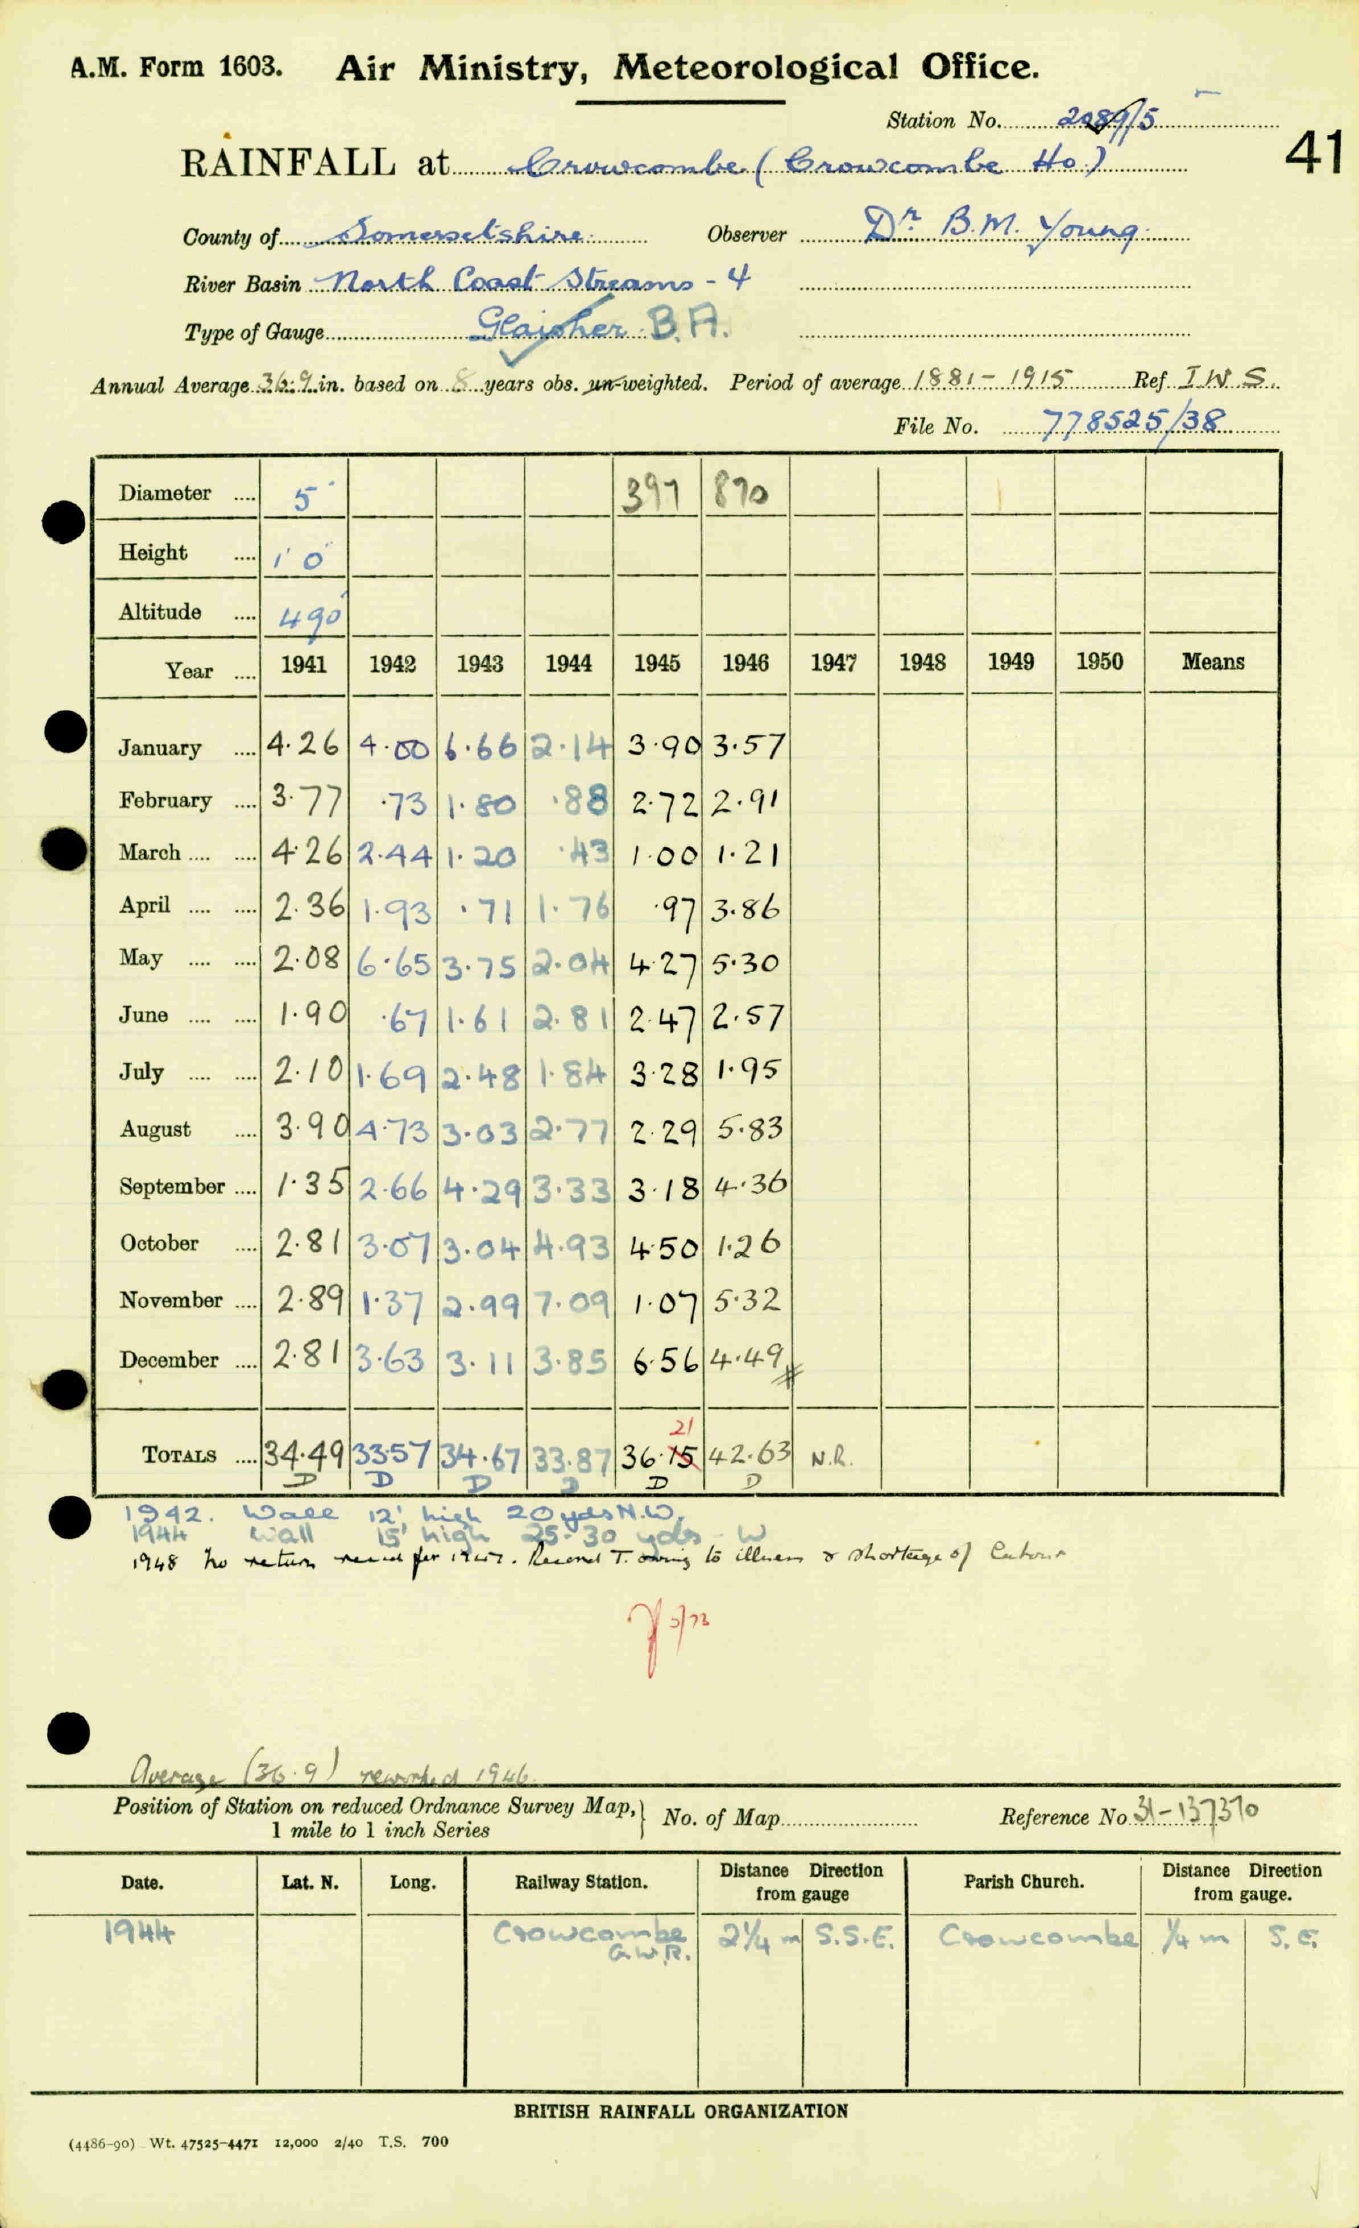 A.M. Form 1603. Air Ministry, Meteorological Office.
Station No. 2089/5
41
RAINFALL at Crowcombe (Crowcombe Ho.)
County of Somersetshire. Observer Dr. B.M. Young.
River Basin North Coast Streams - 4
Type of Gauge Glaisher B.A.
Annual Average 36.9 in. based on 8 years obs. un-weighted. Period of average 1881-1915 Ref I W S.
File No. 778525/38
Diameter .... 5" 397 870
Height .... 1' 0"
Altitude .... 490'
Year .... 1941 1942 1943 1944 1945 1946 1947 1948 1949 1950 Means
January .... 4.26 4.00 6.66 2.14 3.90 3.57
February .... 3.77 .73 1.80 .88 2.72 2.91
March .... .... 4.26 2.44 1.20 .43 1.00 1.21
April .... .... 2.36 1.93 .71 1.76 .97 3.86
May .... .... 2.08 6.65 3.75 2.04 4.27 5.30
June .... .... 1.90 .67 1.61 2.81 2.47 2.57
July .... .... 2.10 1.69 2.48 1.84 3.28 1.95
August .... 3.90 4.73 3.03 2.77 2.29 5.83
September .... 1.35 2.66 4.29 3.33 3.18 4.36
October .... 2.81 3.07 3.04 4.93 4.50 1.26
November .... 2.89 1.37 2.99 7.09 1.07 5.32
December .... 2.81 3.63 3.11 3.85 6.56 4.49
21
TOTALS .... 34.49 33.57 34.67 33.87 36.15 42.63 N.R.
D D D D D D
1942. Wall 12' high 20 yds N.W.
1944 Wall 15' high 25-30 yds - W
1948 No return recd for 1947. Record T. owing to illness & shortage of labour
5/73
Average (36.9) reworked 1946.
Position of Station on reduced Ordnance Survey Map, 1 mile to 1 inch Series } No. of Map Reference No 31-137370
Date. Lat. N. Long. Railway Station. Distance Direction from gauge Parish Church. Distance Direction from gauge.
1944 Crowcombe G.W.R. 2¼ m S.S.E. Crowcombe ¼ m S.E.
BRITISH RAINFALL ORGANIZATION
(4486-90) Wt. 47525-4471 12,000 2/40 T.S. 700